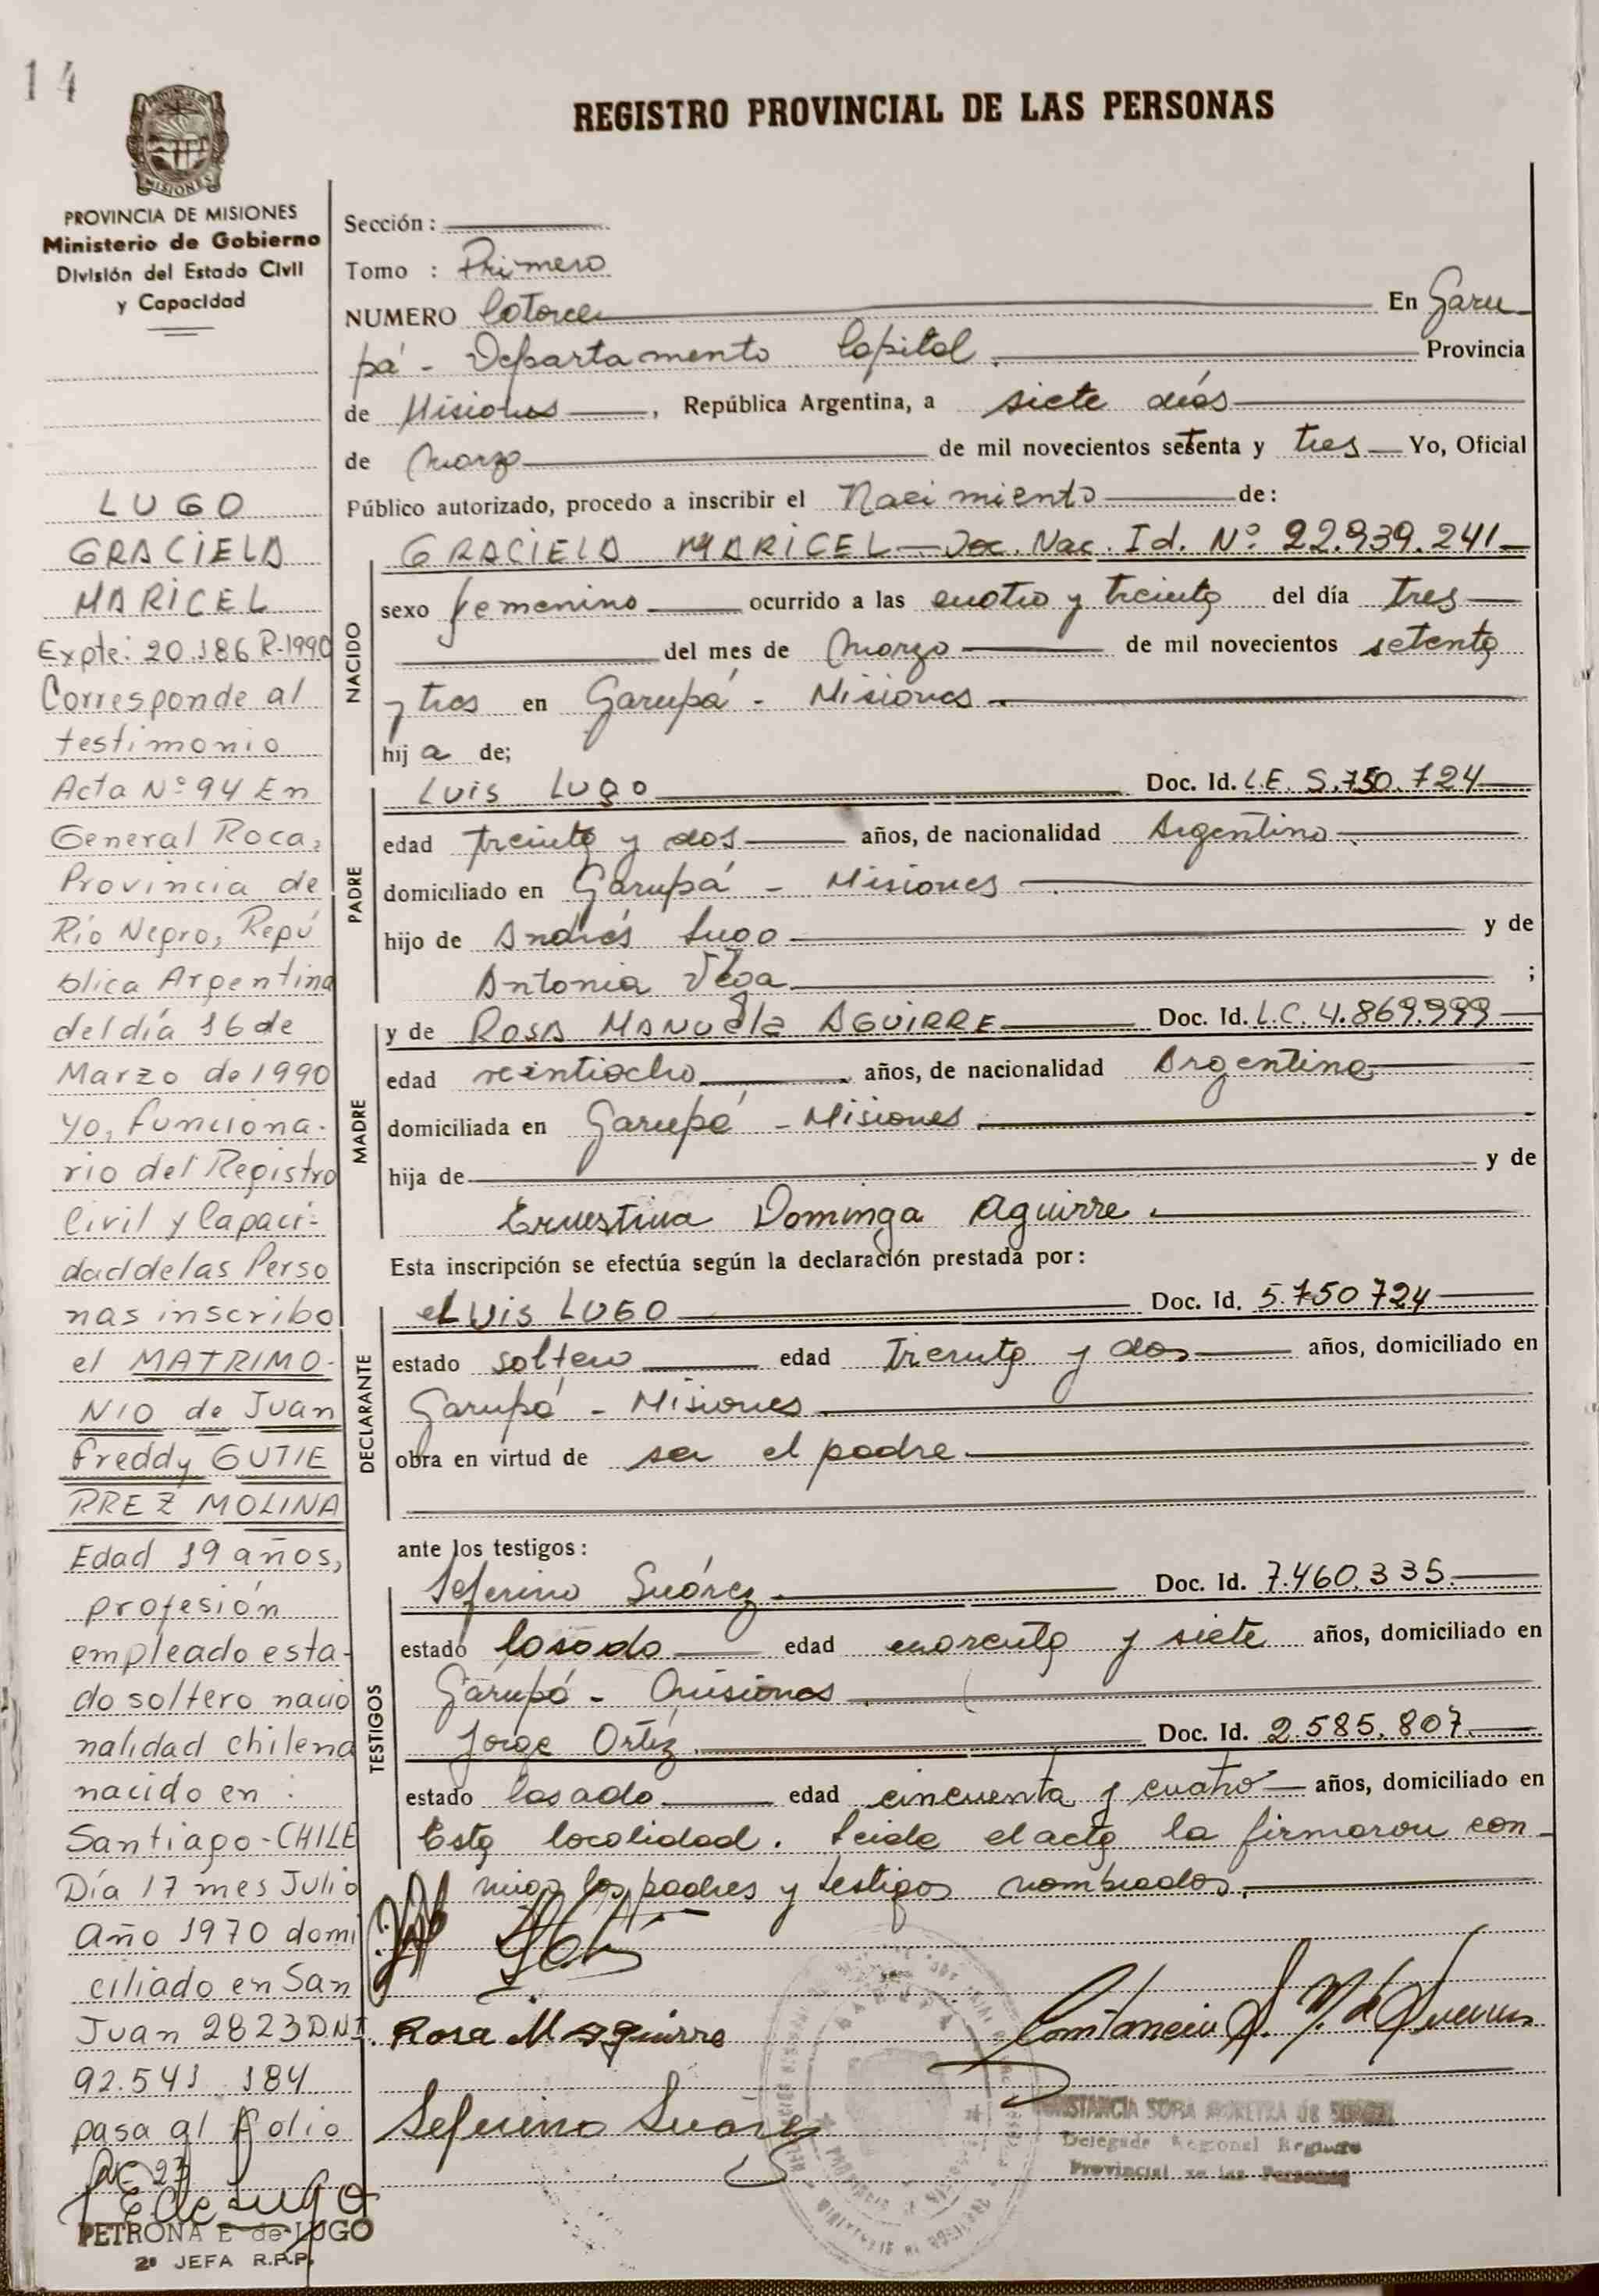 14
REGISTRO PROVINCIAL DE LAS PERSONAS
MISIONES
PROVINCIA DE MISIONES
Ministerio de Gobierno
División del Estado Civil
y Capacidad
LUGO
GRACIELA
MARICEL
Expte: 20.186 R-1990
Corresponde al
testimonio
Acta Nº 94 En
General Roca,
Provincia de
Río Negro, Repú
blica Argentina
del día 16 de
Marzo de 1990
yo, funciona-
rio del Registro
Civil y Capaci-
dad de las Perso
nas inscribo
el MATRIMO-
NIO de Juan
Freddy GUTIE
RREZ MOLINA
Edad 19 años,
profesión
empleado esta-
do soltero nacio
nalidad chilena
nacido en :
Santiago - CHILE
Día 17 mes Julio
Año 1970 domi
ciliado en San
Juan 2823 DNI.
92.541.184
pasa al folio
Nº 27
E de Lugo
PETRONA E de LUGO
2ª JEFA R.P.P.
Sección :
Tomo : Primero
NUMERO Catorce En Garu-
pá - Departamento Capital. Provincia
de Misiones, República Argentina, a siete días
de Marzo de mil novecientos setenta y tres Yo, Oficial
Público autorizado, procedo a inscribir el Nacimiento de:
GRACIELA MARICEL - Doc. Nac. Id. Nº 22.939.241
NACIDO
sexo femenino ocurrido a las cuatro y treinta del día tres
del mes de Marzo de mil novecientos setenta
y tres en Garupá - Misiones.
hij a de;
PADRE
Luis Lugo Doc. Id. L.E. 5.750.724
edad treinta y dos años, de nacionalidad Argentina
domiciliado en Garupá - Misiones
hijo de Andrés Lugo y de
Antonia Vega ;
MADRE
y de ROSA MANUELA AGUIRRE Doc. Id. L.C. 4.869.999
edad veintiocho años, de nacionalidad Argentina
domiciliada en Garupá - Misiones
hija de y de
Ernestina Dominga Aguirre.
Esta inscripción se efectúa según la declaración prestada por :
DECLARANTE
el LUIS LUGO Doc. Id. 5.750.724
estado soltero edad treinta y dos años, domiciliado en
Garupá - Misiones
obra en virtud de ser el padre
ante los testigos :
TESTIGOS
Seferino Suárez Doc. Id. 7.460.335
estado Casado edad cuarenta y siete años, domiciliado en
Garupá - Misiones
Jorge Ortiz Doc. Id. 2.585.807
estado Casado edad cincuenta y cuatro años, domiciliado en
Esta localidad. Leida el acta la firmaron con-
migo los padres y testigos nombrados.
Rosa M Aguirre
Seferino Suarez
Delegada Regional Registro
Provincial de las Personas